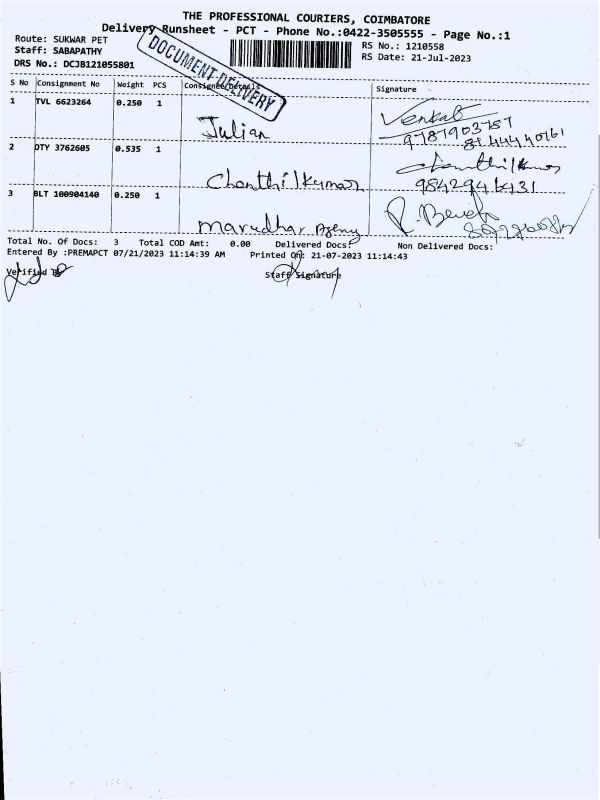 THE PROFESSIONAL COURIERS, COIMBATORE
Delivery Runsheet - PCT - Phone No.:0422-3505555 - Page No.:1
Route: SUKWAR PET
Staff: SABAPATHY
DRS No.: DCJB121055801
DOCUMENT DELIVERY
RS No.: 1210558
RS Date: 21-Jul-2023
S No Consignment No Weight PCS Consignee Details Signature
1 TVL 6623264 0.250 1
Julian Venkat
9787903787
8144440761
2 DTY 3762605 0.535 1
Chanthilkumar chanthilkumar
9842946431
3 BLT 100904140 0.250 1
Marudhar Ageny
Total No. Of Docs: 3 Total COD Amt: 0.00 Delivered Docs: Non Delivered Docs:
Entered By :PREMAPCT 07/21/2023 11:14:39 AM Printed On: 21-07-2023 11:14:43
Verified By Staff Signature